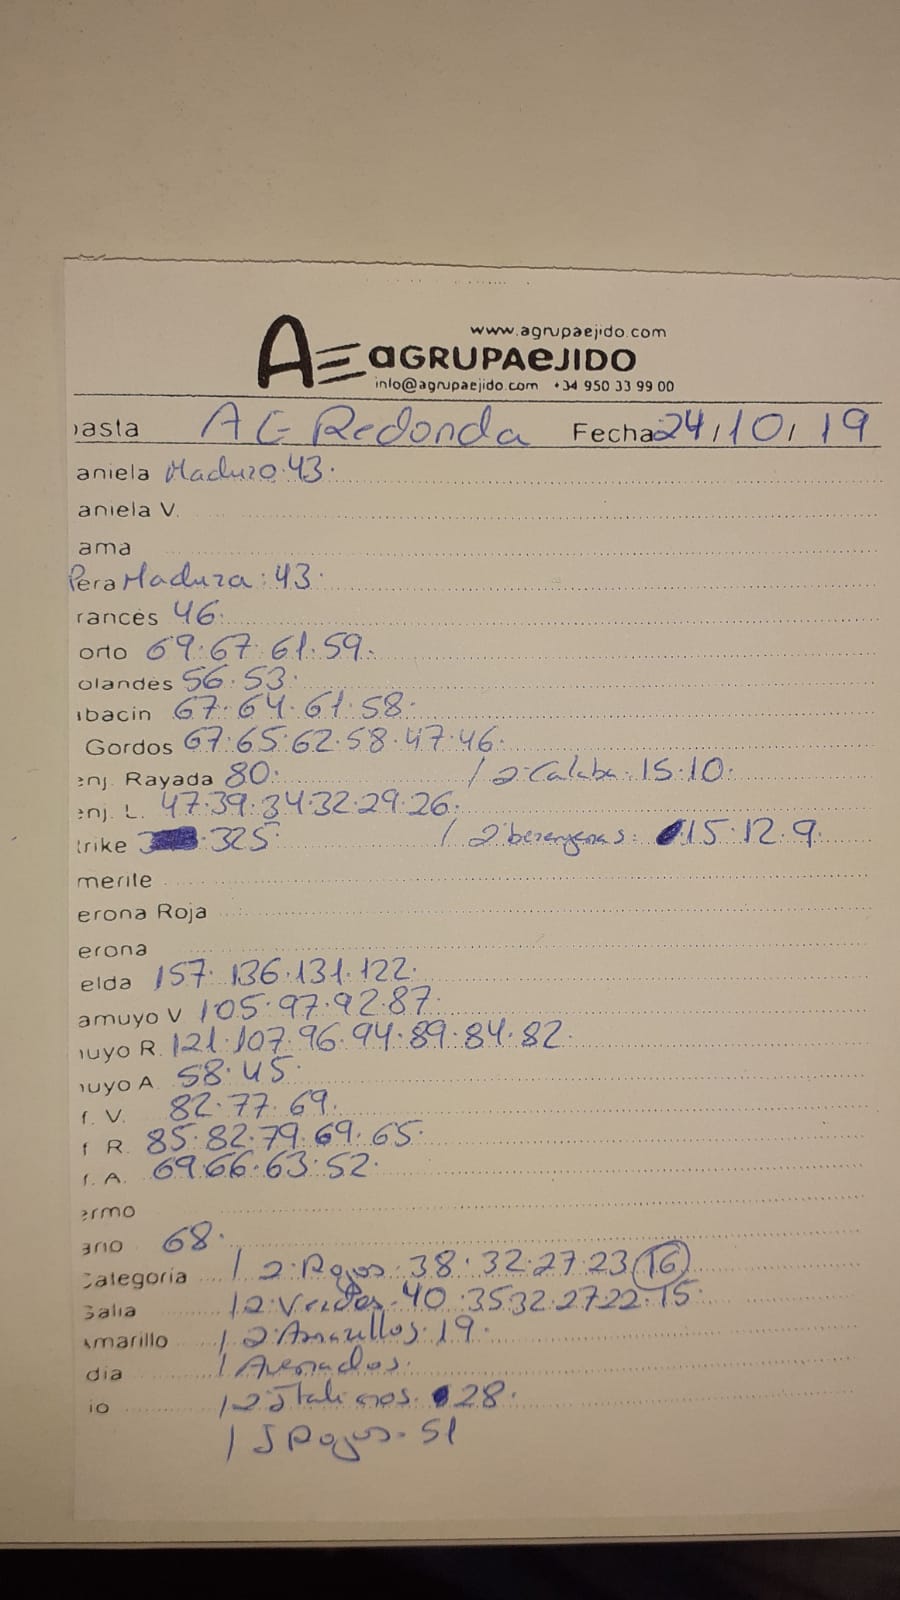 www.agrupaejido.com
AE aGRUPAeJIDO
info@agrupaejido.com +34 950 33 99 00
basta AE Redonda Fecha 24/10/19
aniela Maduro.43.
aniela V.
ama
Pera Madura:43.
rances 46.
orto 69.67.61.59.
olandes 56.53.
abacin 67.64.61.58.
Gordos 67.65.62.58.47.46.
enj. Rayada 80. / 2ª Calaba.15.10.
enj. L. 47.39.34.32.29.26.
trike 325. / 2ª berengenas: 15.12.9.
merite
erona Roja
erona
elda 157.136.131.122.
amuyo V 105.97.92.87.
muyo R. 121.107.96.94.89.84.82.
muyo A. 58.45.
f. V. 82.77.69.
f R. 85.82.79.69.65.
f. A. 69.66.63.52.
ermo
ano 68.
Categoria / 2ª Rojos.38.32.27.23.16
Galia / 2ª Verdes.40.35.32.27.22.15.
Amarillo / 2ª Amarillos.19.
dia / Asenados.
io / 2ª Italianos.28.
/ S Rojos.51